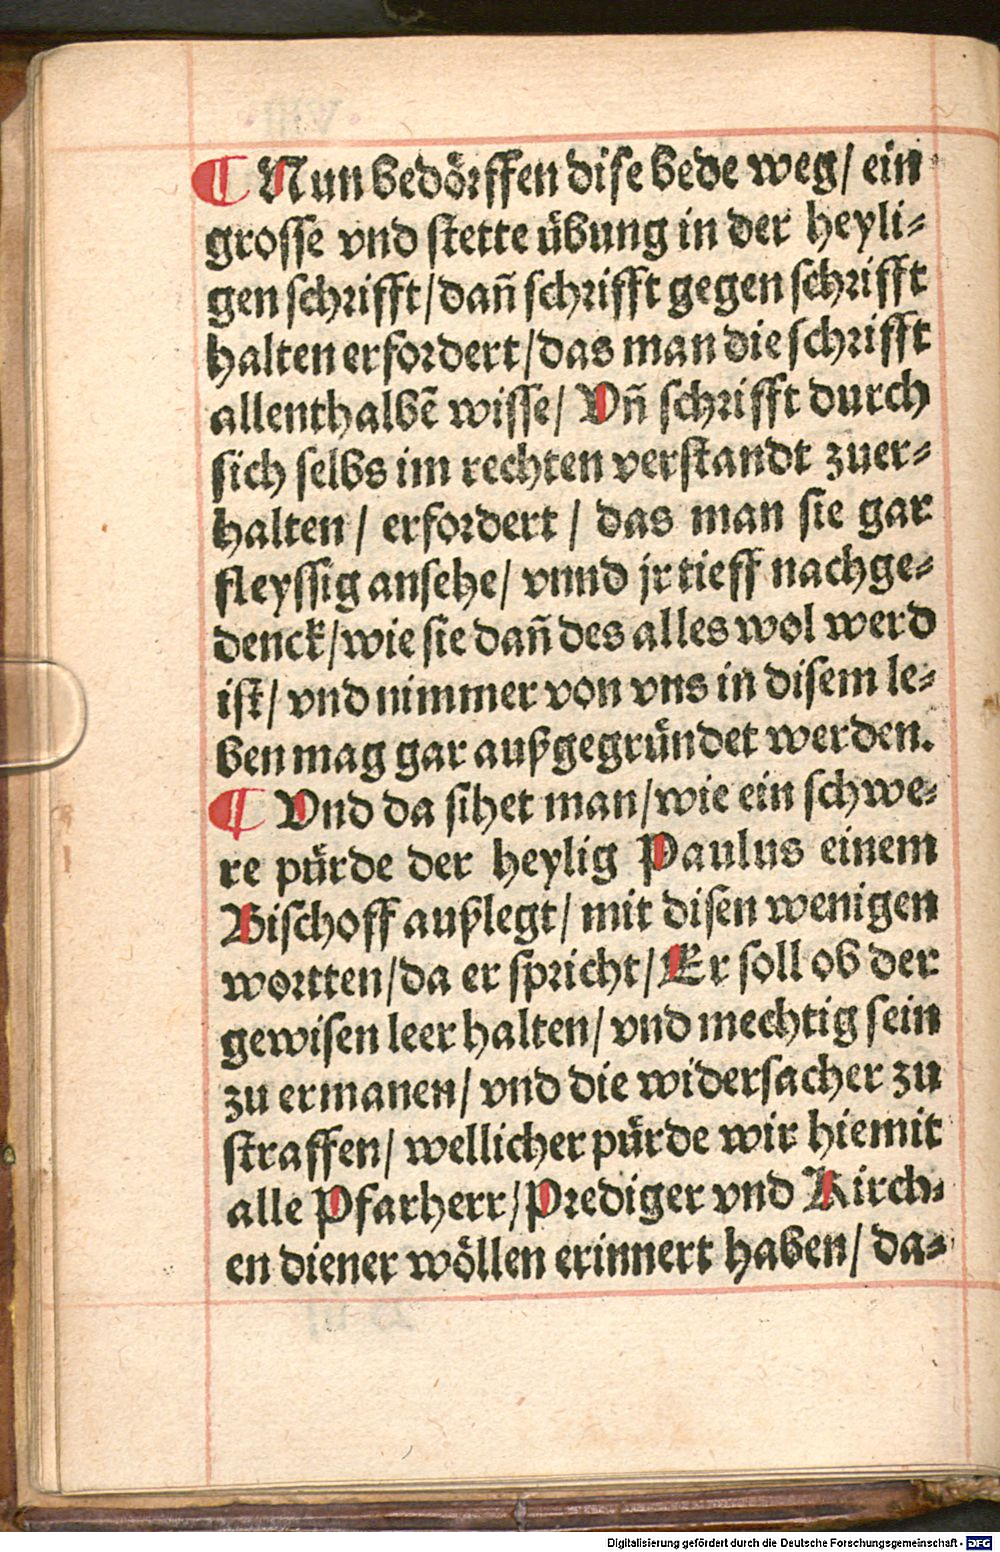 ¶ Nun bedörffen dise bede weg/ ein
grosse vnd stette übung in der heyli⸗
gen schrifft/dañ schrifft gegen schrifft
halten erfordert/das man die schrifft
allenthalbẽ wisse/ Vñ schrifft durch
sich selbs im rechten verstandt zuer⸗
halten/ erfordert/ das man sie gar
fleyssig ansehe/ vnnd jr tieff nachge⸗
denck/wie sie dañ des alles wol werd
ist/ vnd nimmer von vns in disem le⸗
ben mag gar außgegründet werden.
¶ Vnd da sihet man/wie ein schwe⸗
re pürde der heylig Paulus einem
Bischoff außlegt/ mit disen wenigen
wortten/da er spricht/Er soll ob der
gewisen leer halten/ vnd mechtig sein
zu ermanen/ vnd die widersacher zu
straffen/ wellicher pürde wir hiemit
alle Pfarherr/Prediger vnd Kirch⸗
en diener wöllen erinnert haben/ da⸗
Digitalisierung gefördert durch die Deutsche Forschungsgemeinschaft - DFG